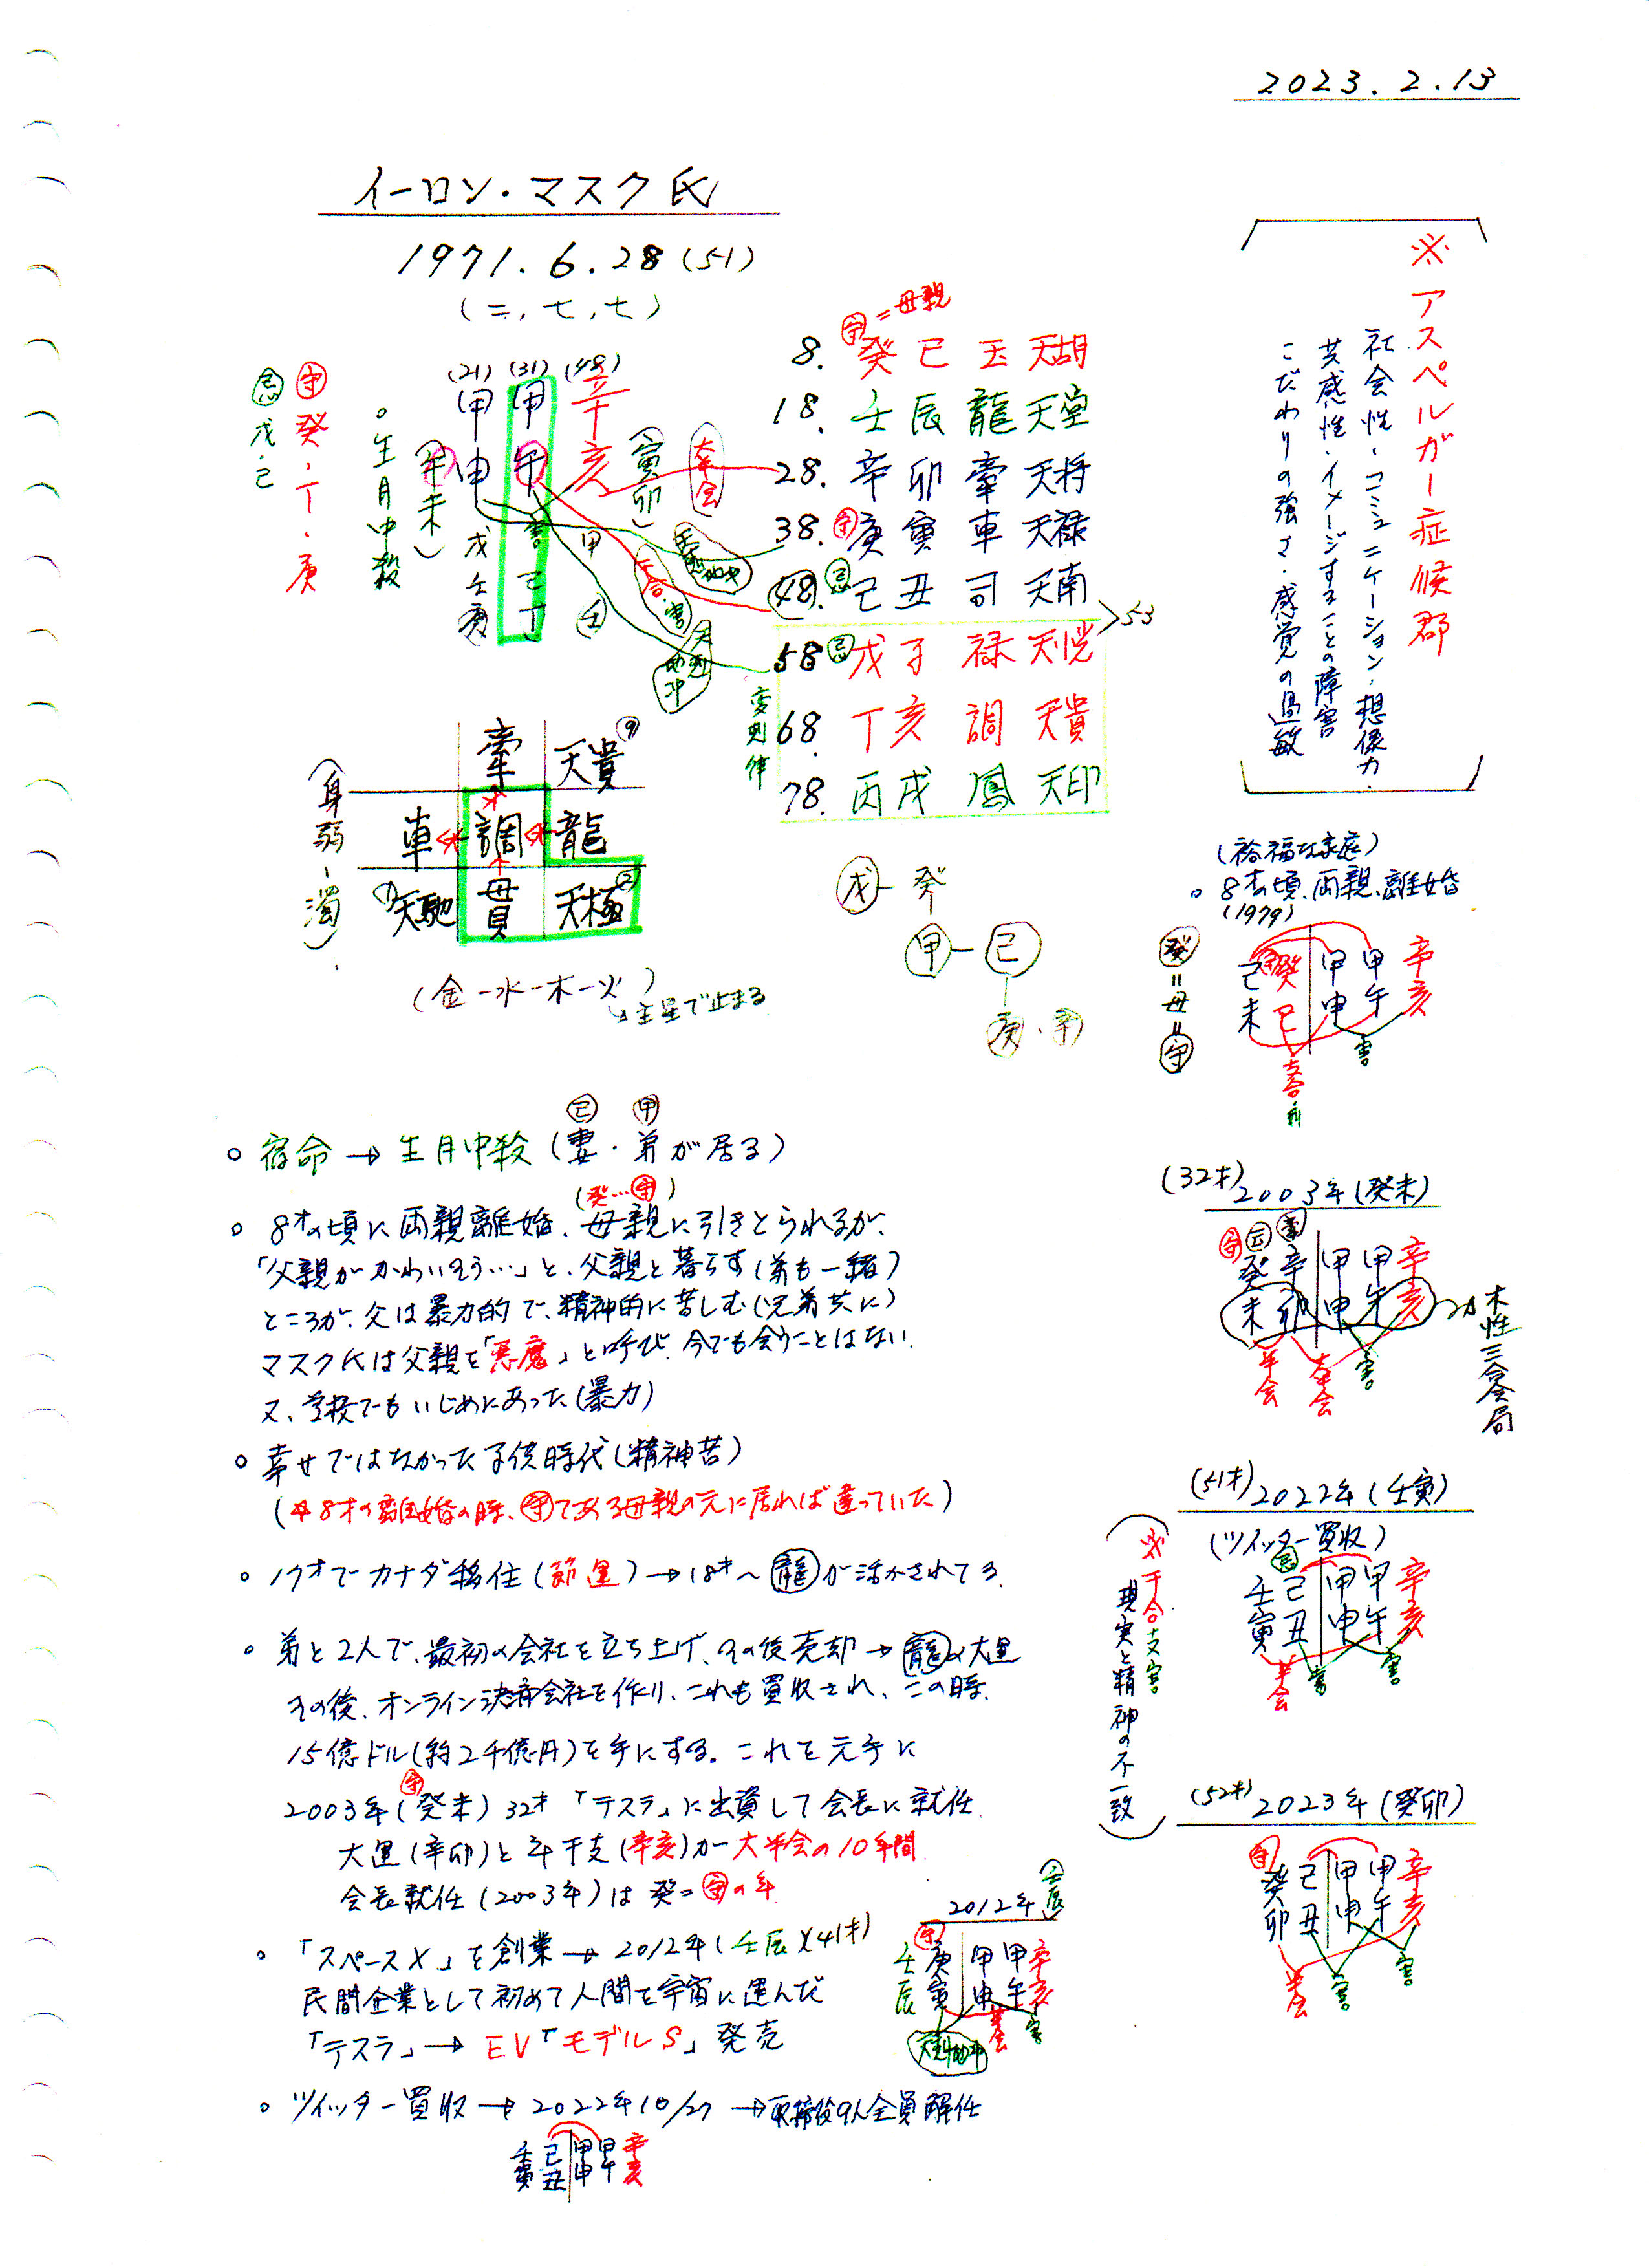 2023.2.13
イーロン・マスク氏
1971.6.28(51)
(二,七,七)
(21) (31) (48)
甲 甲 辛
申 午 亥
戊 己 甲
壬 丁 壬
庚
(午未)
(寅卯)
害
大半会
天剋地冲
干合・害
天剋地冲
㊪癸・丁・庚
㊫戊・己
。生月中殺
守=母親
8. 癸 巳 玉 天胡
18. 壬 辰 龍 天堂
28. 辛 卯 牽 天将
38. 守 庚 寅 車 天禄
48. 忌 己 丑 司 天南
58 忌 戊 子 禄 天恍
68. 丁 亥 調 天貴
78. 丙 戌 鳳 天印
>53
変則律
※アスペルガー症候郡
社会性・コミュニケーション・想像力・
共感性・イメージすることの障害
こだわりの強さ・感覚の過敏
(身弱-濁)
牽 天貴 ⑨
車 調 龍
天馳 貫 天極 ②
(金-水-木-火)
→主星で止まる
戊-癸
甲-己
庚・辛
(裕福な家庭)
。8才の頃、両親、離婚
(1979)
癸=母=守
己 癸 甲 甲 辛
未 巳 申 午 亥
害
支合・刑
(32才) 2003年(癸未)
癸 辛 甲 甲 辛
未 卯 申 午 亥
半会 大半会 害
木性三合会局
(51才) 2022年(壬寅)
(ツイッター買収)
壬 己 甲 甲 辛
寅 丑 申 午 亥
半会 害 害
※干合支害
現実と精神の不一致
(52才) 2023年(癸卯)
癸 己 甲 甲 辛
卯 丑 申 午 亥
半会 害 害
己 甲
。宿命→生月中殺(妻・弟が居る)
(癸…守)
。8才の頃に両親離婚、母親に引きとられるが、
「父親がかわいそう…」と、父親と暮らす(弟も一緒)
ところが、父は暴力的で、精神的に苦しむ(兄弟共に)
マスク氏は父親を「悪魔」と呼び、今でも会うことはない
又、学校でもいじめにあった(暴力)
。幸せではなかった子供時代(精神苦)
(※8才の離婚の時、守である母親の元に居れば違っていた)
。17才でカナダ移住(節運)→18才〜龍が活かされてる
。弟と2人で、最初の会社を立ち上げ、その後売却→龍の大運
その後、オンライン決済会社を作り、これも買収され、この時、
15億ドル(約2千億円)を手にする。これを元手に
守
2003年(癸未)32才「テスラ」に出資して会長に就任
大運(辛卯)と年干支(辛亥)が大半会の10年間
会長就任(2003年)は癸=守の年
。「スペースX」を創業→2012年(壬辰)(41才)
民間企業として初めて人間を宇宙に運んだ
「テスラ」→EV「モデルS」発売
2012年(壬辰)
壬 庚 甲 甲 辛
辰 寅 申 午 亥
天剋地冲
半会 害
。ツイッター買収→2022年10/27→取締役9人全員解任
壬 己 甲 甲 辛
寅 丑 申 午 亥